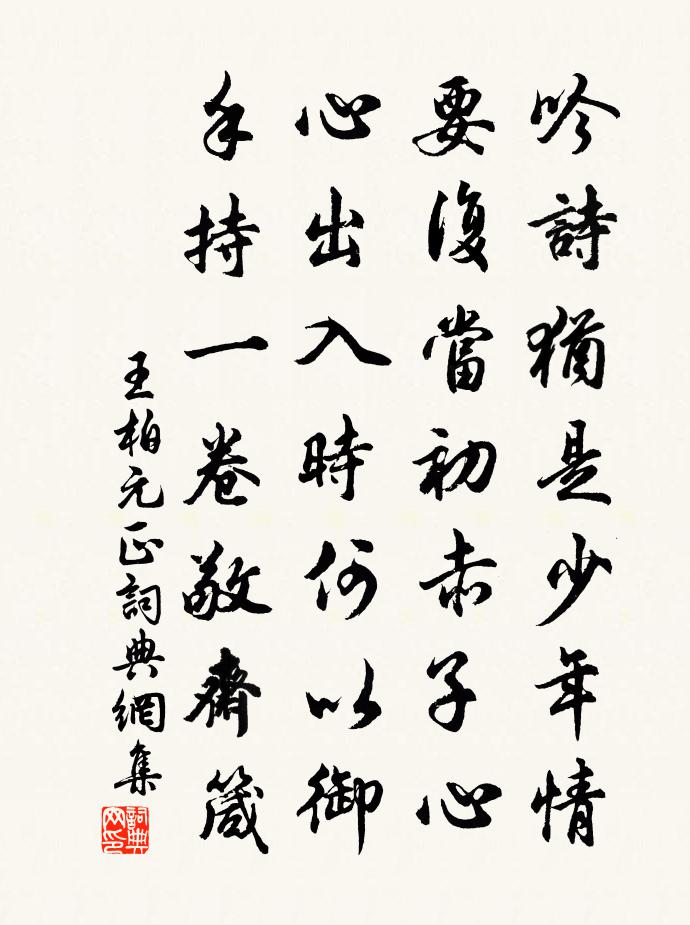 吟詩猶是少年情
要復當初赤子心
心出入時何以御
手持一卷敬齋箴
王柏元正詞典網集
詞典網印